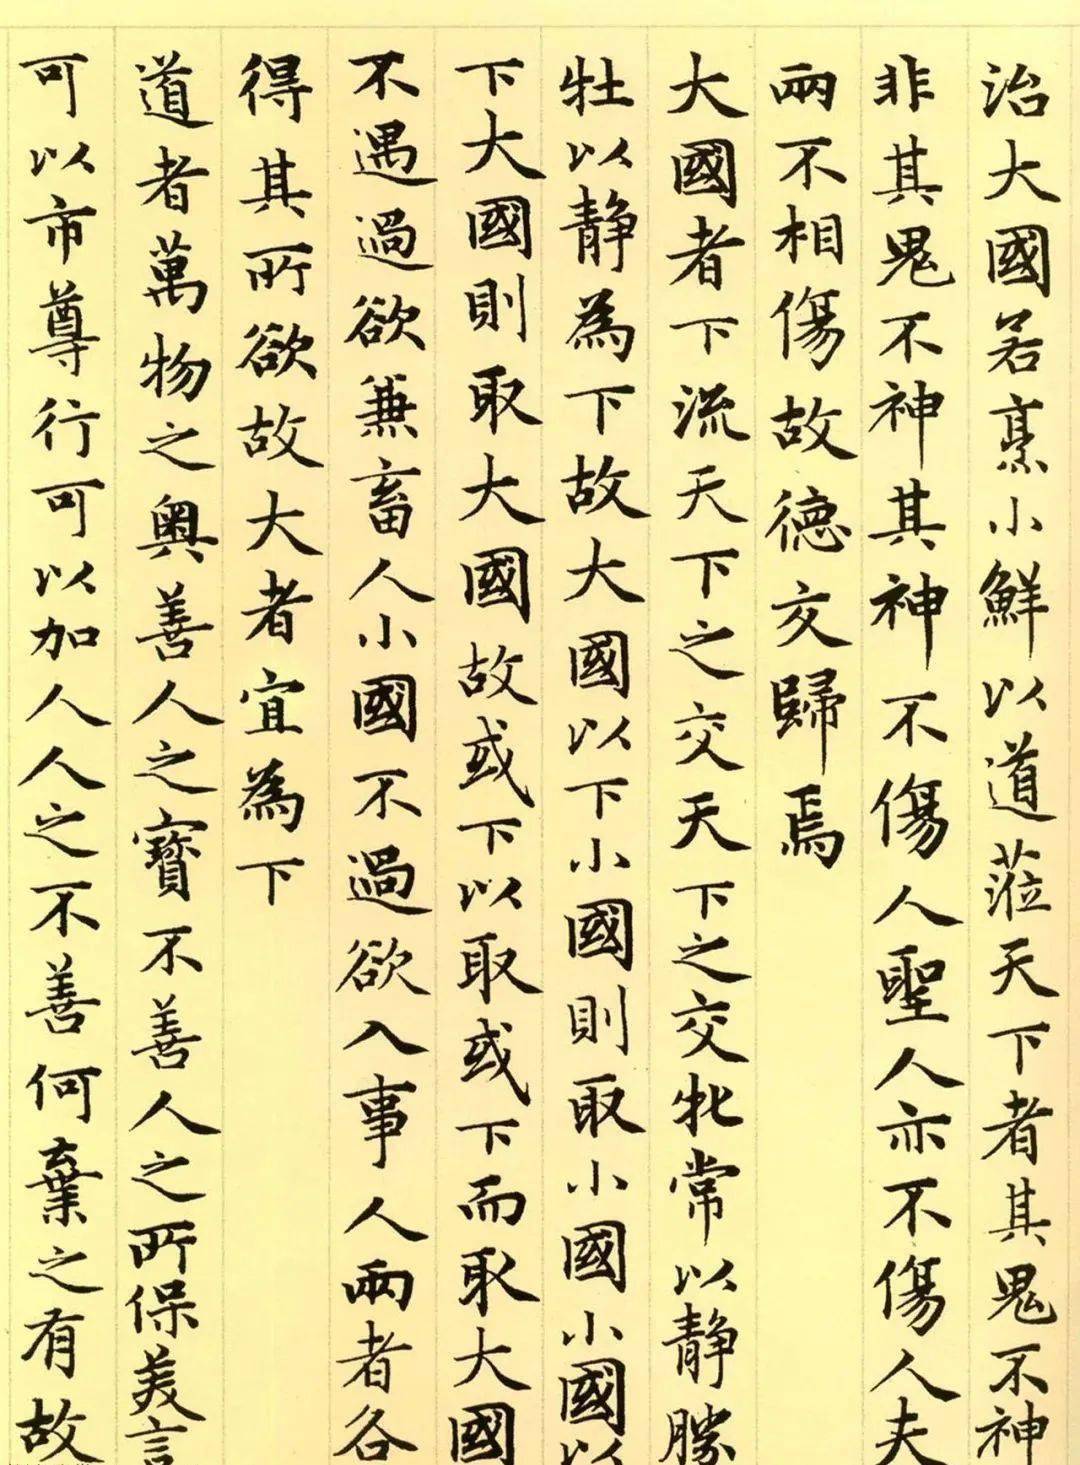 治大國若烹小鮮以道蒞天下者其鬼不神
非其鬼不神其神不傷人聖人亦不傷人夫
兩不相傷故德交歸焉
大國者下流天下之交天下之交牝常以靜勝
牡以靜為下故大國以下小國則取小國小國以
下大國則取大國故或下以取或下而取大國
不遇過欲兼畜人小國不過欲入事人兩者各
得其所欲故大者宜為下
道者萬物之奧善人之寶不善人之所保美言
可以市尊行可以加人人之不善何棄之有故